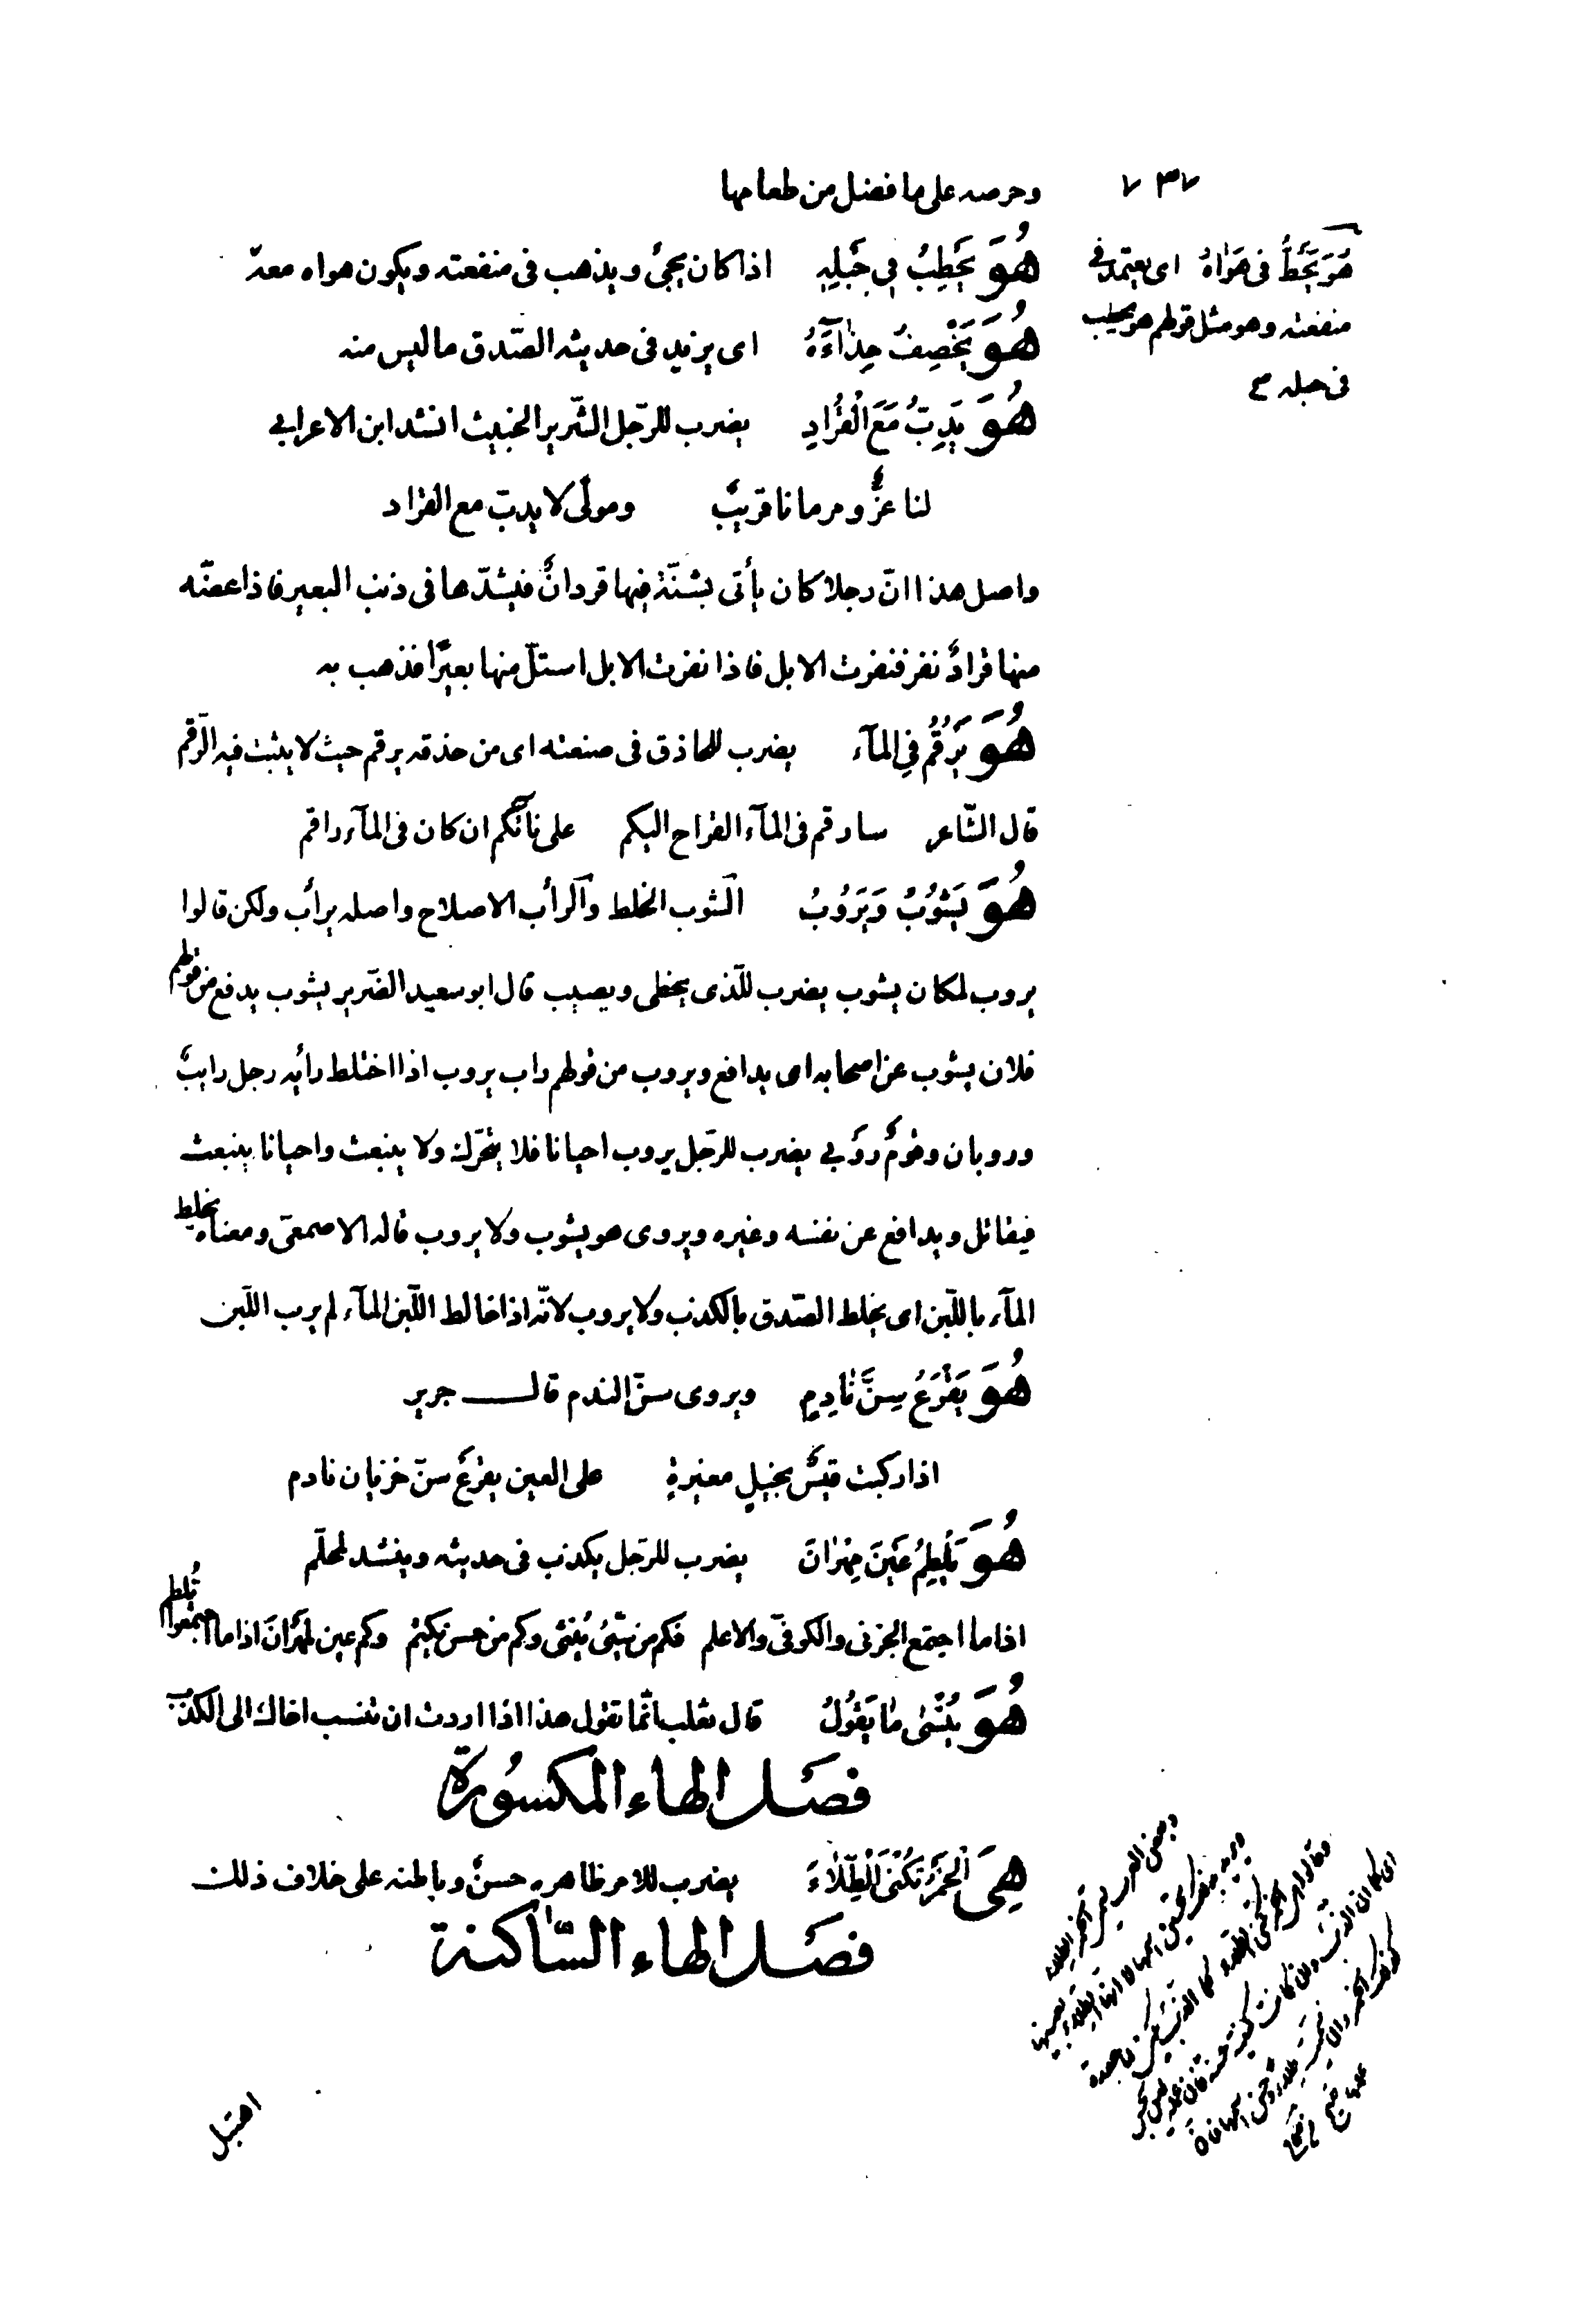 ٧٣٧
وحرصه على ما فضل من طعامها
هُوَ يَحْطِبُ فِي حَبْلِهِ اذا كان يجئ ويذهب فى منفعته ويكون هواه معه
هُوَ يَخْصِفُ حِذَآءَهُ اى يزيد فى حديثه الصّدق ما ليس منه
هُوَ يَدِبُّ مَعَ الْقُرَادِ يضرب للرّجل الشّرير الخبيث انشد ابن الاعرابي
لنا عزٌّ ومرمانا قريبٌ ومولًى لا يدبّ مع القراد
واصل هذا انّ رجلا كان يأتى بشنّة فيها قردانٌ فيشدّها فى ذنب البعير فاذا عضّه
منها قرادٌ نفر فنفرت الابل فاذا نفرت الابل استلّ منها بعيرًا فذهب به
هُوَ يَرْقُمُ فِي المآء يضرب للحاذق فى صنعته اى من حذقه يرقم حيث لا يثبت فيه الرّقم
قال الشّاعر سارقم فى المآء القراح اليكم على نأيكم ان كان فى المآء راقم
هُوَ يَشُوْبُ وَيَرُوْبُ الشوب الخلط والرأب الاصلاح واصله يرأب ولكن قالوا
يروب لمكان يشوب يضرب للّذى يخطى ويصيب قال ابو سعيد الضّرير يشوب يدفع من قولهم
فلان يشوب عن اصحابه اى يدافع ويروب من قولهم راب يروب اذا اختلط رأيه رجل رايبٌ
وروبان وقومٌ روْبي يضرب للرّجل يروب احيانا فلا يتحرّك ولا ينبعث واحيانا ينبعث
فيقاتل ويدافع عن نفسه وغيره ويروى هو يشوب ولا يروب قاله الاصمعىّ ومعناه يخلط
المآء باللّبن اى يخلط الصّدق بالكذب ولا يروب لانّه اذا خالط اللّبن المآء لم يرب اللّبن
هُوَ يَقْرَعُ سِنَّ نَادِمٍ ويروى سنّ الندم قال جرير
اذا ركبت قيسٌ بخيلٍ مغيرةٍ على العين يقرعْ سنّ خزيان نادم
هُوَ يَلْطِمُ عَيْنَ مِهْرَانَ يضرب للرّجل يكذب فى حديثه وينشد لمحلّم
اذا ما اجتمع الجزنى والكوفىّ والاعلم فكم من سيّئ يُنثى وكم من حسن يكتم وكم عين لمهرانَ اذا ما اجتمعوا تُلطم
هُوَ يُنْسٰى مَا يَقُوْلُ قال ثعلب انّما تقول هذا اذا اردت ان تنسب اخاك الى الكذب
فصَل الهاء المكسُورة
هِىَ الْخَمْرُ تُكْنَى الْطِّلَاءَ يضرب للامر ظاهره حسنٌ وباطنه على خلاف ذلك
فصَل الهاء السّاكنة
اهتبل
هُوَ يَحُطُّ فى هَوَاهُ اى يعتمد فى
منفعته وهو مثل قولهم هو يحطب
فى حبله